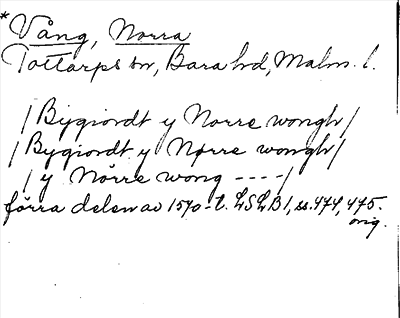 *Vång, Norra
Tottarps sn, Bara hd, Malm. l.
/Bygiordt y Norre wongh/
/Bygiordt y Nørre wongh/
/y Nørre wong ----/
förra delen av 1570-t. LSLB1, ss. 474, 475.
orig.